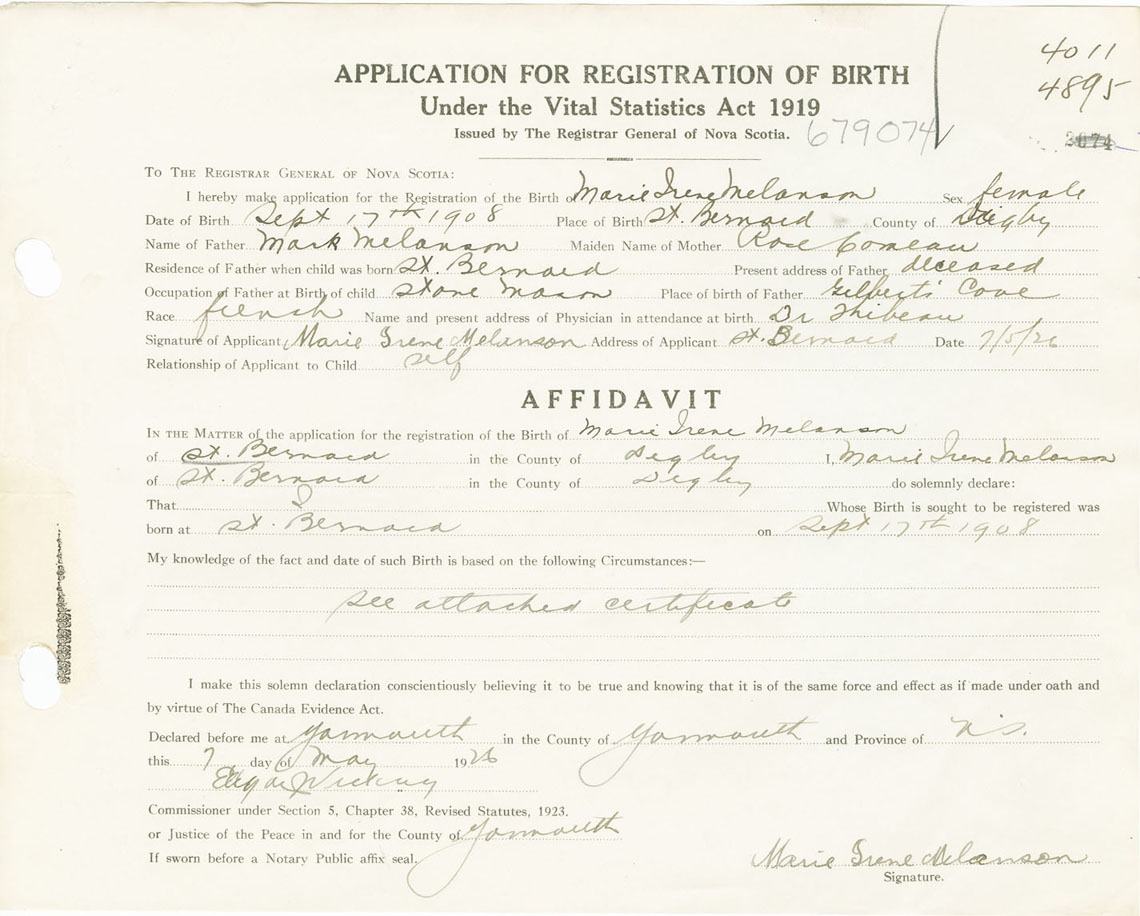 4011
4895
APPLICATION FOR REGISTRATION OF BIRTH
Under the Vital Statistics Act 1919
Issued by The Registrar General of Nova Scotia.
679074
3674
To The Registrar General of Nova Scotia:
I hereby make application for the Registration of the Birth of Marie Irene Melanson Sex female
Date of Birth Sept 17th 1908 Place of Birth St. Bernard County of Digby
Name of Father Mark Melanson Maiden Name of Mother Rose Comeau
Residence of Father when child was born St. Bernard Present address of Father deceased
Occupation of Father at Birth of child stone mason Place of birth of Father Gilberts Cove
Race french Name and present address of Physician in attendance at birth Dr Thibeau
Signature of Applicant Marie Irene Melanson Address of Applicant St. Bernard Date 7/5/26
Relationship of Applicant to Child self
AFFIDAVIT
In the Matter of the application for the registration of the Birth of Marie Irene Melanson
of St. Bernard in the County of Digby I, Marie Irene Melanson
of St. Bernard in the County of Digby do solemnly declare:
That I Whose Birth is sought to be registered was
born at St. Bernard on Sept 17th 1908
My knowledge of the fact and date of such Birth is based on the following Circumstances:—
see attached certificate
I make this solemn declaration conscientiously believing it to be true and knowing that it is of the same force and effect as if made under oath and
by virtue of The Canada Evidence Act.
Declared before me at Yarmouth in the County of Yarmouth and Province of N.S.
this 7 day of May 1926
Commissioner under Section 5, Chapter 38, Revised Statutes, 1923.
or Justice of the Peace in and for the County of Yarmouth
If sworn before a Notary Public affix seal.
Marie Irene Melanson
Signature.